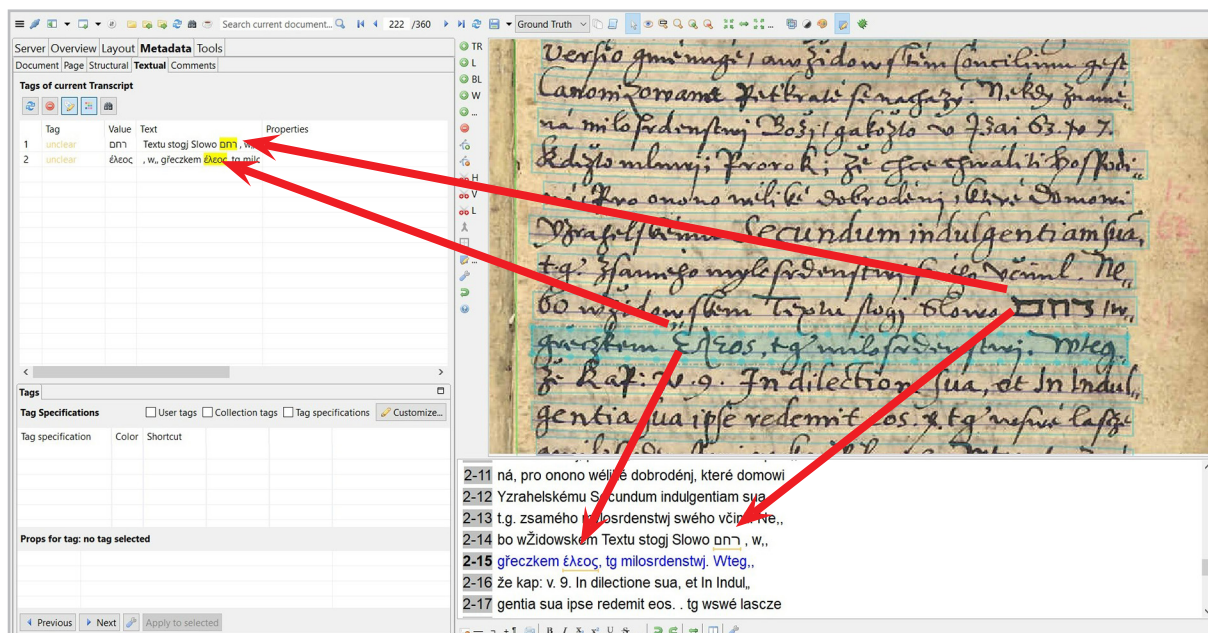 Search current document...
222 /360
Ground Truth
Server Overview Layout Metadata Tools
Document Page Structural Textual Comments
Tags of current Transcript
Tag Value Text Properties
1 unclear רחם Textu stogj Slowo רחם , w,,
2 unclear έλεος , w,, gřeczkem έλεος, tg milc
Tags
Tag Specifications User tags Collection tags Tag specifications Customize...
Tag specification Color Shortcut
Props for tag: no tag selected
Previous Next Apply to selected
TR
L
BL
W
...
H
V
L
...
Versio gménugé, anž Židowském Concilium gest
Canonizowané Petkraté se nachazý. Nekdy zname,
ná milosrdenstwj Božj, gakožto v Jzai 63. v 7.
Kdižto mluwj Prorok, že chce chwáliti hospodi,,
ná, Pro onono weliké dobrodénj, které Domowi
Yzrahelskému Secundum indulgentiam sua,
t.g. zsamého mylosrdenstwj swého včinil. Ne,,
bo wŽidowském Textu stogj Slowo רחם, w,,
gřeczkem έλεος, tg milosrdenstwj. Wteg,,
že Kap: v. 9. In dilectione sua, et In Indul,,
gentia sua ipse redemit eos. tg wswé lascze
2-11 ná, pro onono wéliké dobrodénj, které domowi
2-12 Yzrahelskému Secundum indulgentiam sua
2-13 t.g. zsamého mylosrdenstwj swého včinil Ne,,
2-14 bo wŽidowském Textu stogj Slowo רחם , w,,
2-15 gřeczkem έλεος, tg milosrdenstwj. Wteg,,
2-16 že kap: v. 9. In dilectione sua, et In Indul,,
2-17 gentia sua ipse redemit eos. . tg wswé lascze